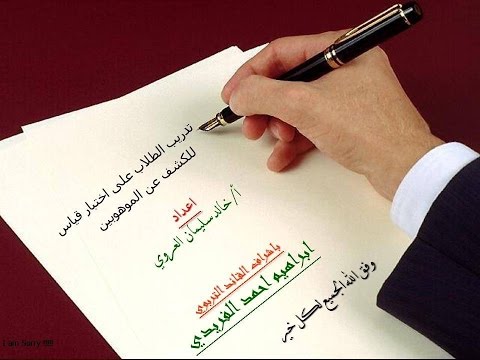 تدريب الطلاب على اختبار قياس
للكشف عن الموهوبين
اعداد
أ/خالد سليمان العروي
بإشراف القائد التربوي
ابراهيم احمد الفريدي
وفق الله الجميع لكل خير